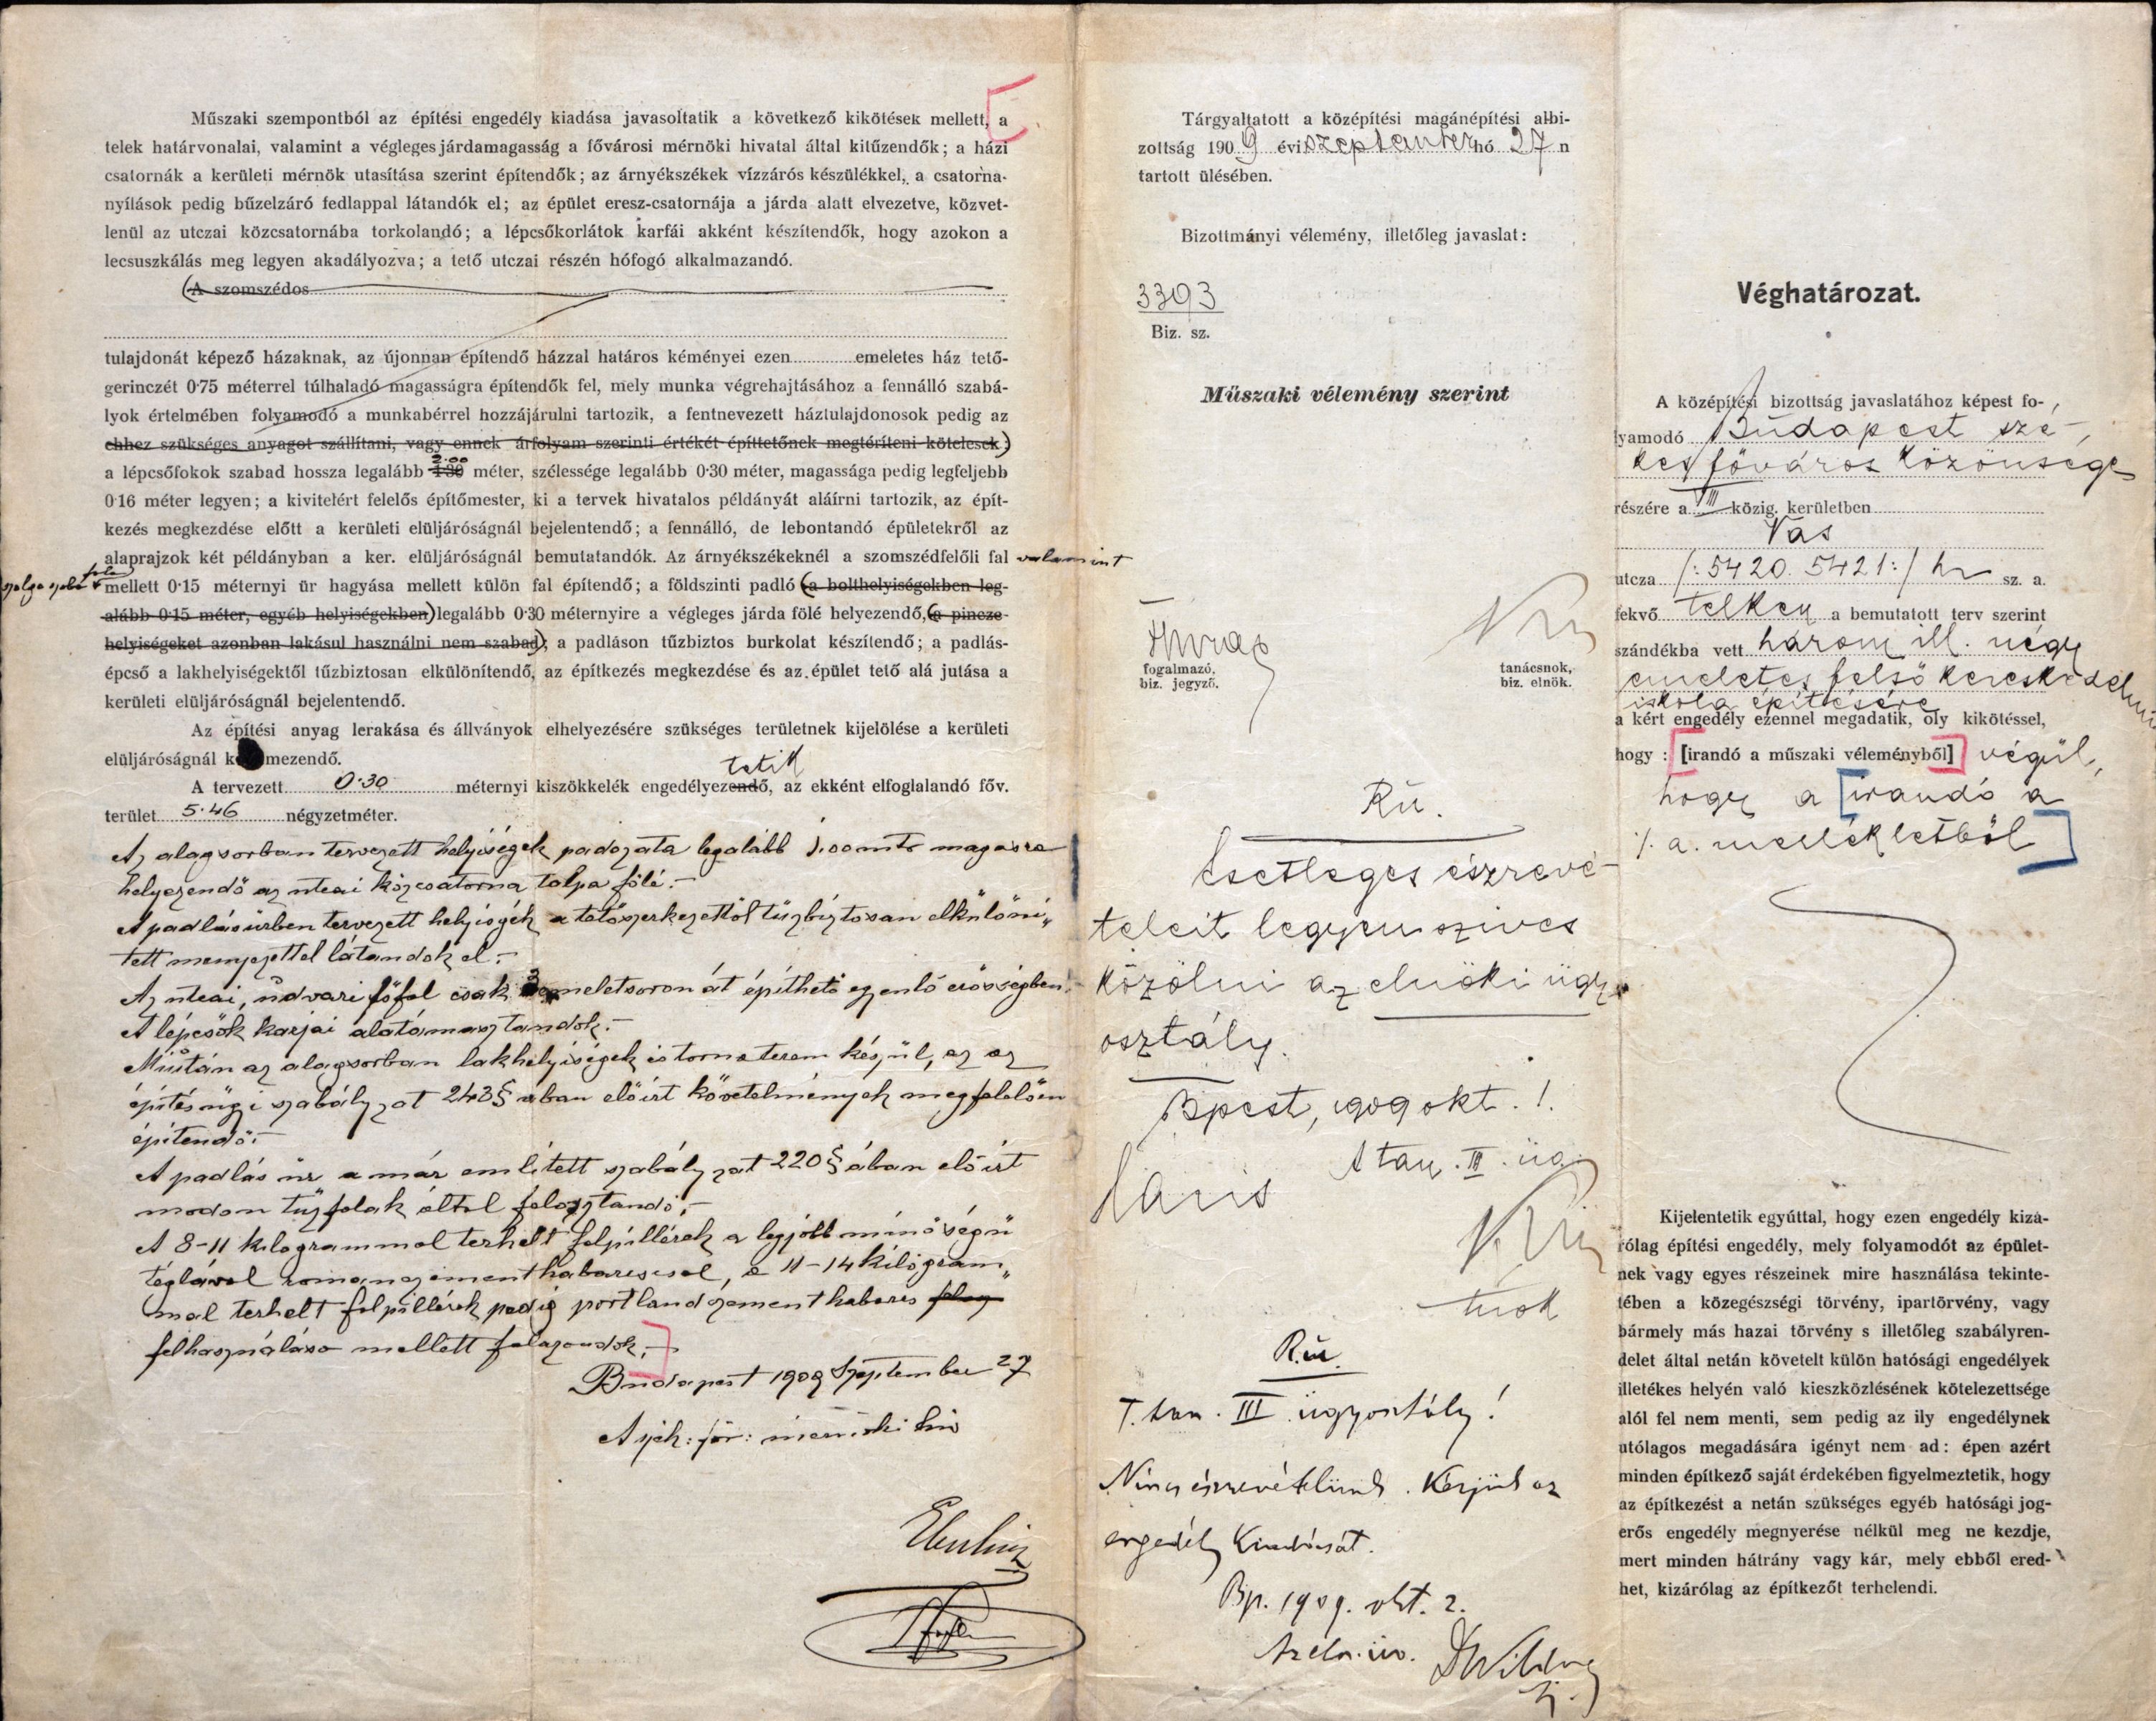 Műszaki szempontból az építési engedély kiadása javasoltatik a következő kikötések mellett, a
telek határvonalai, valamint a végleges járdamagasság a fővárosi mérnöki hivatal által kitűzendők; a házi
csatornák a kerületi mérnök utasítása szerint építendők; az árnyékszékek vízzárós készülékkel, a csatorna-
nyílások pedig bűzelzáró fedlappal látandók el; az épület eresz-csatornája a járda alatt elvezetve, közvet-
lenül az utczai közcsatornába torkolandó; a lépcsőkorlátok karfái akként készítendők, hogy azokon a
lecsuszkálás meg legyen akadályozva; a tető utczai részén hófogó alkalmazandó.
(A szomszédos
tulajdonát képező házaknak, az újonnan építendő házzal határos kéményei ezen emeletes ház tető-
gerinczét 0·75 méterrel túlhaladó magasságra építendők fel, mely munka végrehajtásához a fennálló szabá-
lyok értelmében folyamodó a munkabérrel hozzájárulni tartozik, a fentnevezett háztulajdonosok pedig az
ehhez szükséges anyagot szállítani, vagy ennek árfolyam szerinti értékét építtetőnek megtéríteni kötelesek;)
2·00
a lépcsőfokok szabad hossza legalább 1·30 méter, szélessége legalább 0·30 méter, magassága pedig legfeljebb
0·16 méter legyen; a kivitelért felelős építőmester, ki a tervek hivatalos példányát aláírni tartozik, az épít-
kezés megkezdése előtt a kerületi elüljáróságnál bejelentendő; a fennálló, de lebontandó épületekről az
alaprajzok két példányban a ker. elüljáróságnál bemutatandók. Az árnyékszékeknél a szomszédfelőli fal valamint
mellett 0·15 méternyi ür hagyása mellett külön fal építendő; a földszinti padló (a bolthelyiségekben leg-
alább 0·15 méter, egyéb helyiségekben) legalább 0·30 méternyire a végleges járda fölé helyezendő, (a pincze-
helyiségeket azonban lakásul használni nem szabad); a padláson tűzbiztos burkolat készítendő; a padlás-
épcső a lakhelyiségektől tűzbiztosan elkülönítendő, az építkezés megkezdése és az épület tető alá jutása a
kerületi elüljáróságnál bejelentendő.
Az építési anyag lerakása és állványok elhelyezésére szükséges területnek kijelölése a kerületi
elüljáróságnál k mezendő.
tetik
A tervezett 0·30 méternyi kiszökkelék engedélyezendő, az ekként elfoglalandó főv.
terület 5·46 négyzetméter.
Az alagsorban tervezett helyiségek padozata legalább 1.00 mtr magasra
helyezendő az utcai közcsatorna talpa fölé.-
A padlásűrben tervezett helyiségek a tetőszerkezettől tűzbiztosan elkülöni-
tett menyezettel látandók el.-
Az utcai, udvari főfal csak 3 emeletsoron át építhető egyenlő erősségben.
A lépcsők karjai alátámasztandók.-
Miután az alagsorban lakhelyiségek és tornaterem készül, ez az
építésügyi szabályzat 243 §-ában előírt követelmények megfelelően
építendő.-
A padlás űr a már említett szabályzat 220 § ában előírt
modon tűzfalak által felosztandó,-
A 8-11 kilogrammal terhelt falpillérek a legjobb minőségű
téglával romanczementhabarcscsal, a 11-14 kilogram-
mal terhelt falpillérek pedig portlandczementhabarcs
felhasználása mellett falazandók.-
Budapest 1909 Szeptember 27
A szék: főv: mérnöki hiv
Tárgyaltatott a középítési magánépítési albi-
zottság 1909 évi szeptember hó 27 n
tartott ülésében.
Bizottmányi vélemény, illetőleg javaslat:
3393
Biz. sz.
Műszaki vélemény szerint
fogalmazó,
biz. jegyző.
tanácsnok,
biz. elnök.
Rü.
Esetleges észrevé-
teleit legyen szives
közölni az elnöki ügy-
osztály.
Bpest, 1909 okt. 1.
A tan. III. üo.
tnok
R.ü.
T. tan. III ügyosztály!
Nincs észrevételünk. Kérjük az
engedély kiadását.
Bp. 1909. okt. 2.
Az eln. üo.
Véghatározat.
A középítési bizottság javaslatához képest fo-
lyamodó Budapest szé-
kesfőváros közönsége
részére a VIII közig. kerületben
Vas
utcza /:5420. 5421:/ hr sz. a.
fekvő telken a bemutatott terv szerint
szándékba vett három ill. négy
emeletes felső kereskedelmi
iskola építésére
a kért engedély ezennel megadatik, oly kikötéssel,
hogy: [irandó a műszaki véleményből] végül,
hogy a [irandó a
./. a. mellékletből]
Kijelentetik egyúttal, hogy ezen engedély kizá-
rólag építési engedély, mely folyamodót az épület-
nek vagy egyes részeinek mire használása tekinte-
tében a közegészségi törvény, ipartörvény, vagy
bármely más hazai törvény s illetőleg szabályren-
delet által netán követelt külön hatósági engedélyek
illetékes helyén való kieszközlésének kötelezettsége
alól fel nem menti, sem pedig az ily engedélynek
utólagos megadására igényt nem ad: épen azért
minden építkező saját érdekében figyelmeztetik, hogy
az építkezést a netán szükséges egyéb hatósági jog-
erős engedély megnyerése nélkül meg ne kezdje,
mert minden hátrány vagy kár, mely ebből ered-
het, kizárólag az építkezőt terhelendi.